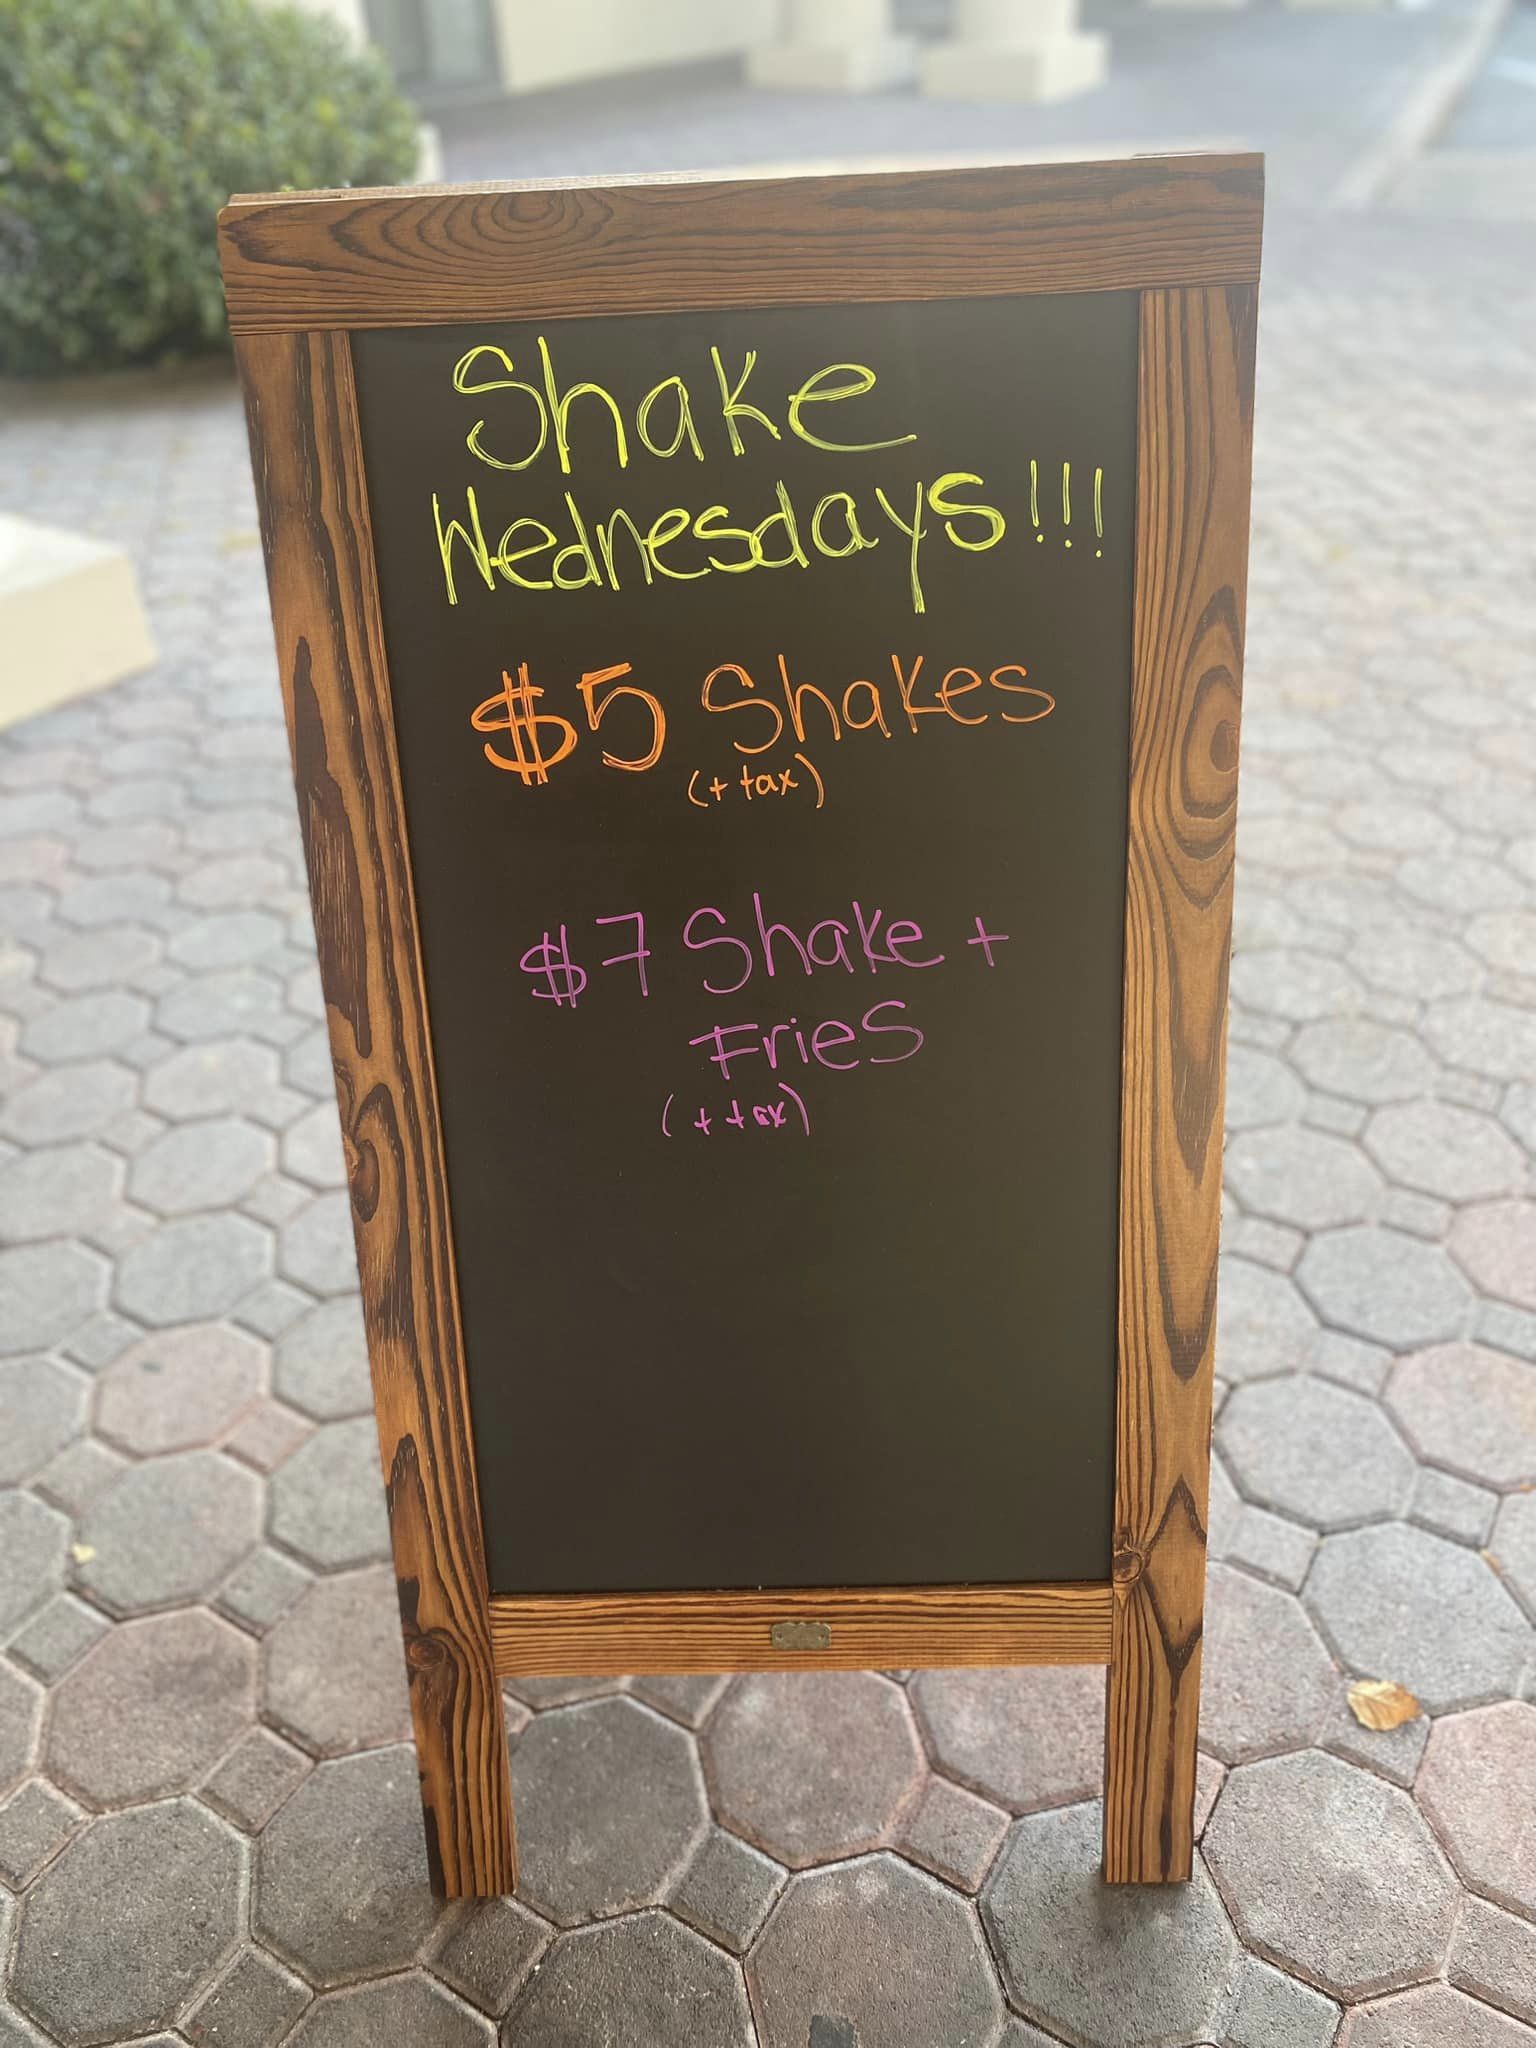 Shake
Wednesdays!!!
$5 Shakes
(+ tax)
$7 Shake +
Fries
(+ tax)